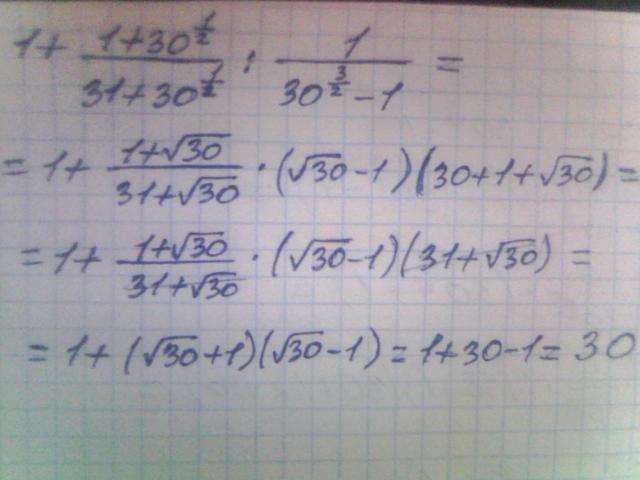 1 + (1+30^(1/2))/(31+30^(1/2)) : 1/(30^(3/2)-1) =
= 1 + (1+√30)/(31+√30) · (√30-1)(30+1+√30) =
= 1 + (1+√30)/(31+√30) · (√30-1)(31+√30) =
= 1 + (√30+1)(√30-1) = 1+30-1 = 30